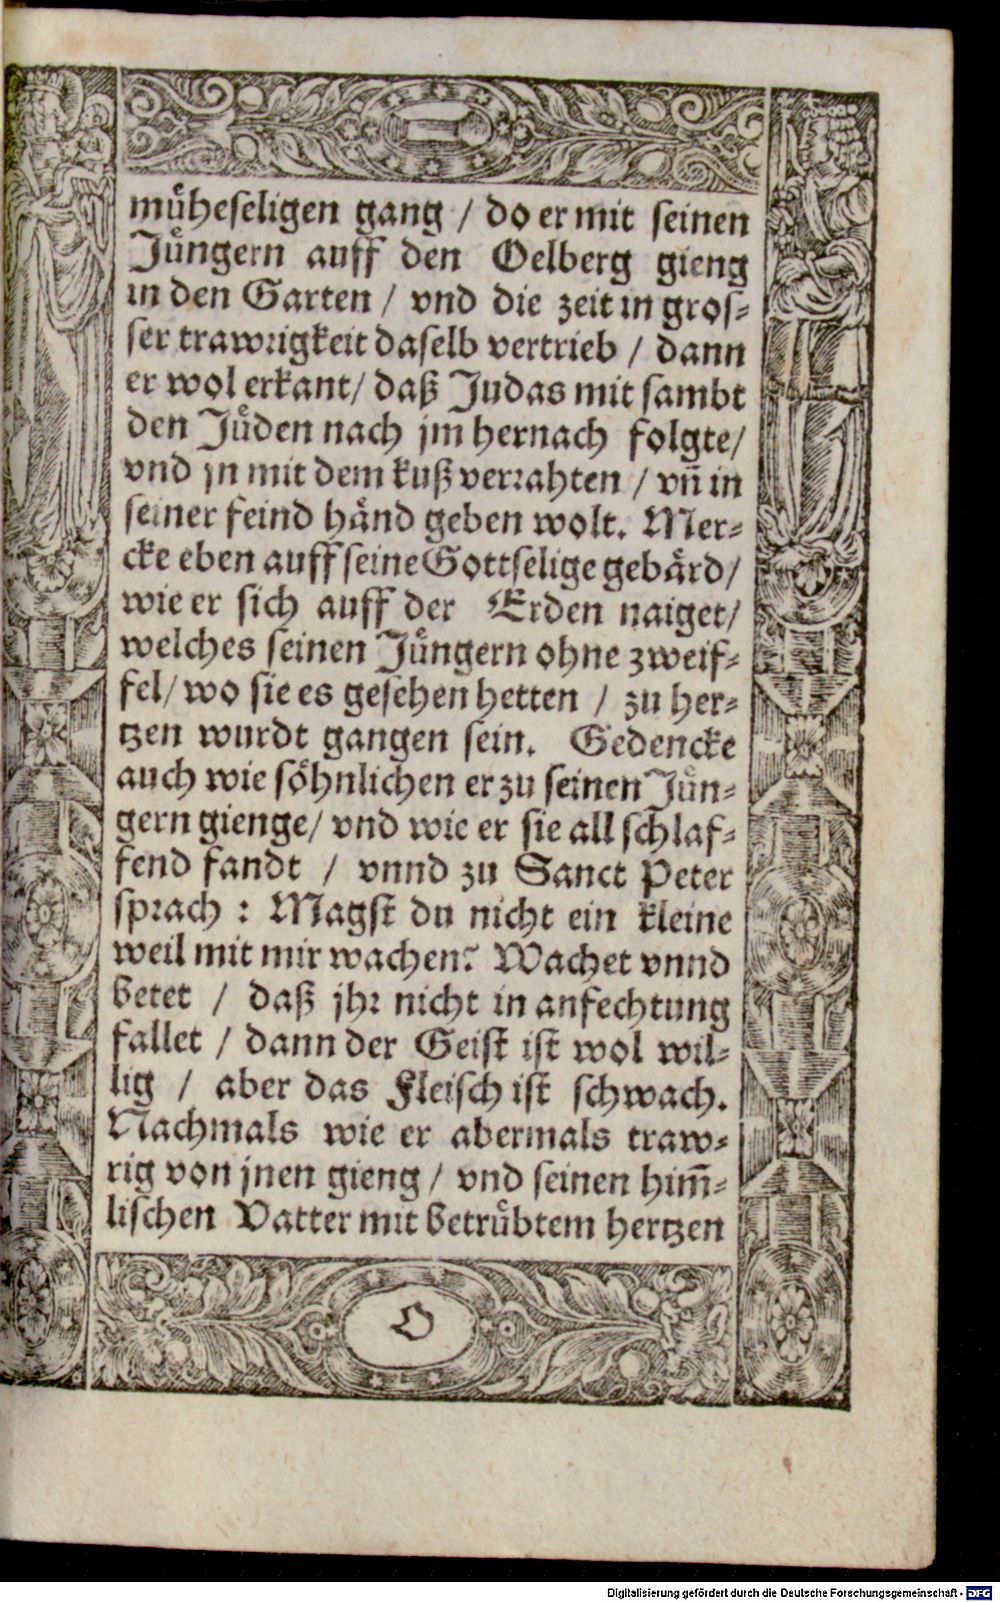 müheseligen gang / do er mit seinen
Jüngern auff den Oelberg gieng
in den Garten / vnd die zeit in gros-
ser trawrigkeit daselb vertrieb / dann
er wol erkant / daß Judas mit sambt
den Jüden nach jm hernach folgte /
vnd jn mit dem kuß verrahten / vñ in
seiner feind händ geben wolt. Mer-
cke eben auff seine Gottselige gebärd /
wie er sich auff der Erden naiget /
welches seinen Jüngern ohne zweif-
fel / wo sie es gesehen hetten / zu her-
tzen wurdt gangen sein. Gedencke
auch wie söhnlichen er zu seinen Jün-
gern gienge / vnd wie er sie all schlaf-
fend fandt / vnnd zu Sanct Peter
sprach : Magst du nicht ein kleine
weil mit mir wachen? Wachet vnnd
betet / daß jhr nicht in anfechtung
fallet / dann der Geist ist wol wil-
lig / aber das Fleisch ist schwach.
Nachmals wie er abermals traw-
rig von jnen gieng / vnd seinen him̃-
lischen Vatter mit betrübtem hertzen
O
Digitalisierung gefördert durch die Deutsche Forschungsgemeinschaft - DFG